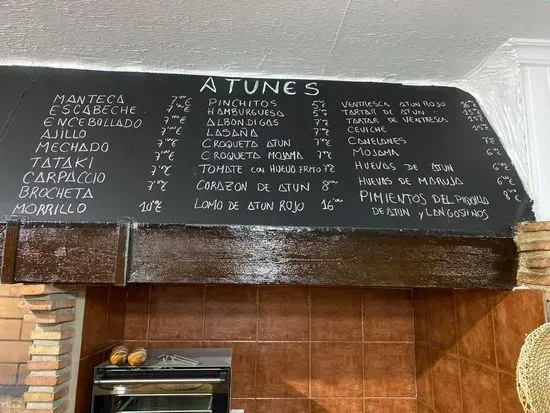 ATUNES
MANTECA 7'00€
ESCABECHE 7'00€
ENCEBOLLADO 7'00€
AJILLO 7'00€
MECHADO 7'00€
TATAKI 7'00€
CARPACCIO 7'00€
BROCHETA 7'00€
MORRILLO 10'00€
PINCHITOS 5'00€
HAMBURGUESA 5'00€
ALBONDIGAS 7'00€
LASAÑA 7'00€
CROQUETA ATUN 7'00€
CROQUETA MOJAMA 7'00€
TOMATE CON HUEVO FRITO 7'00€
CORAZON DE ATUN 8'00€
LOMO DE ATUN ROJO 16'00€
VENTRESCA ATUN ROJO
TARTAR DE ATUN 15'00€
TARTAR DE VENTRESCA 15'00€
CEVICHE 15'00€
CANELONES 7'00€
MOJAMA 6'00€
HUEVAS DE ATUN 6'00€
HUEVAS DE MARUJA 6'00€
PIMIENTOS DEL PIQUILLO 8'00€
DE ATUN Y LANGOSTINOS